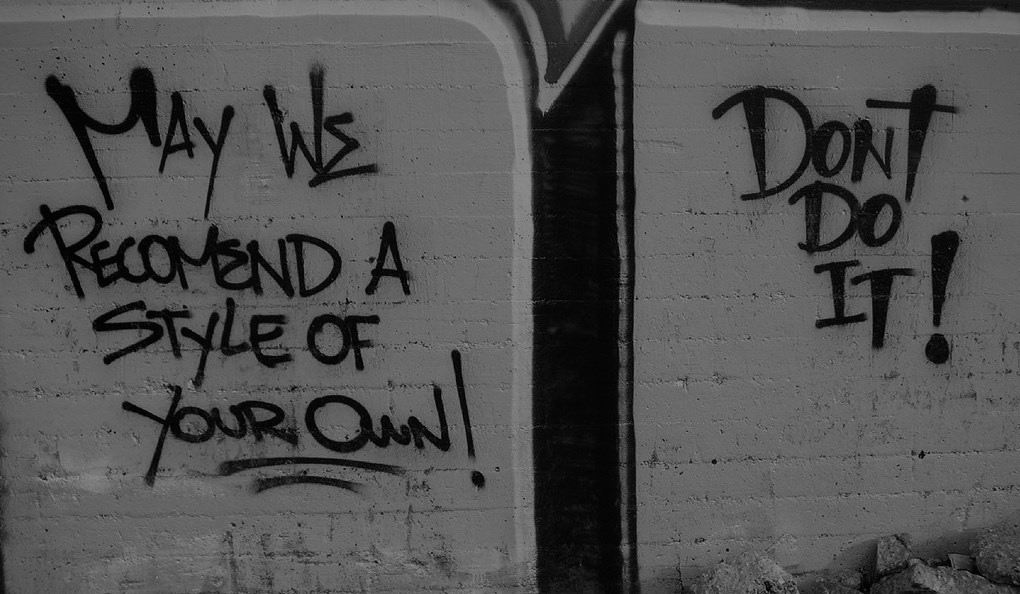 MAY WE
RECOMEND A
STYLE OF
YOUR OWN!
DONT
DO
IT!